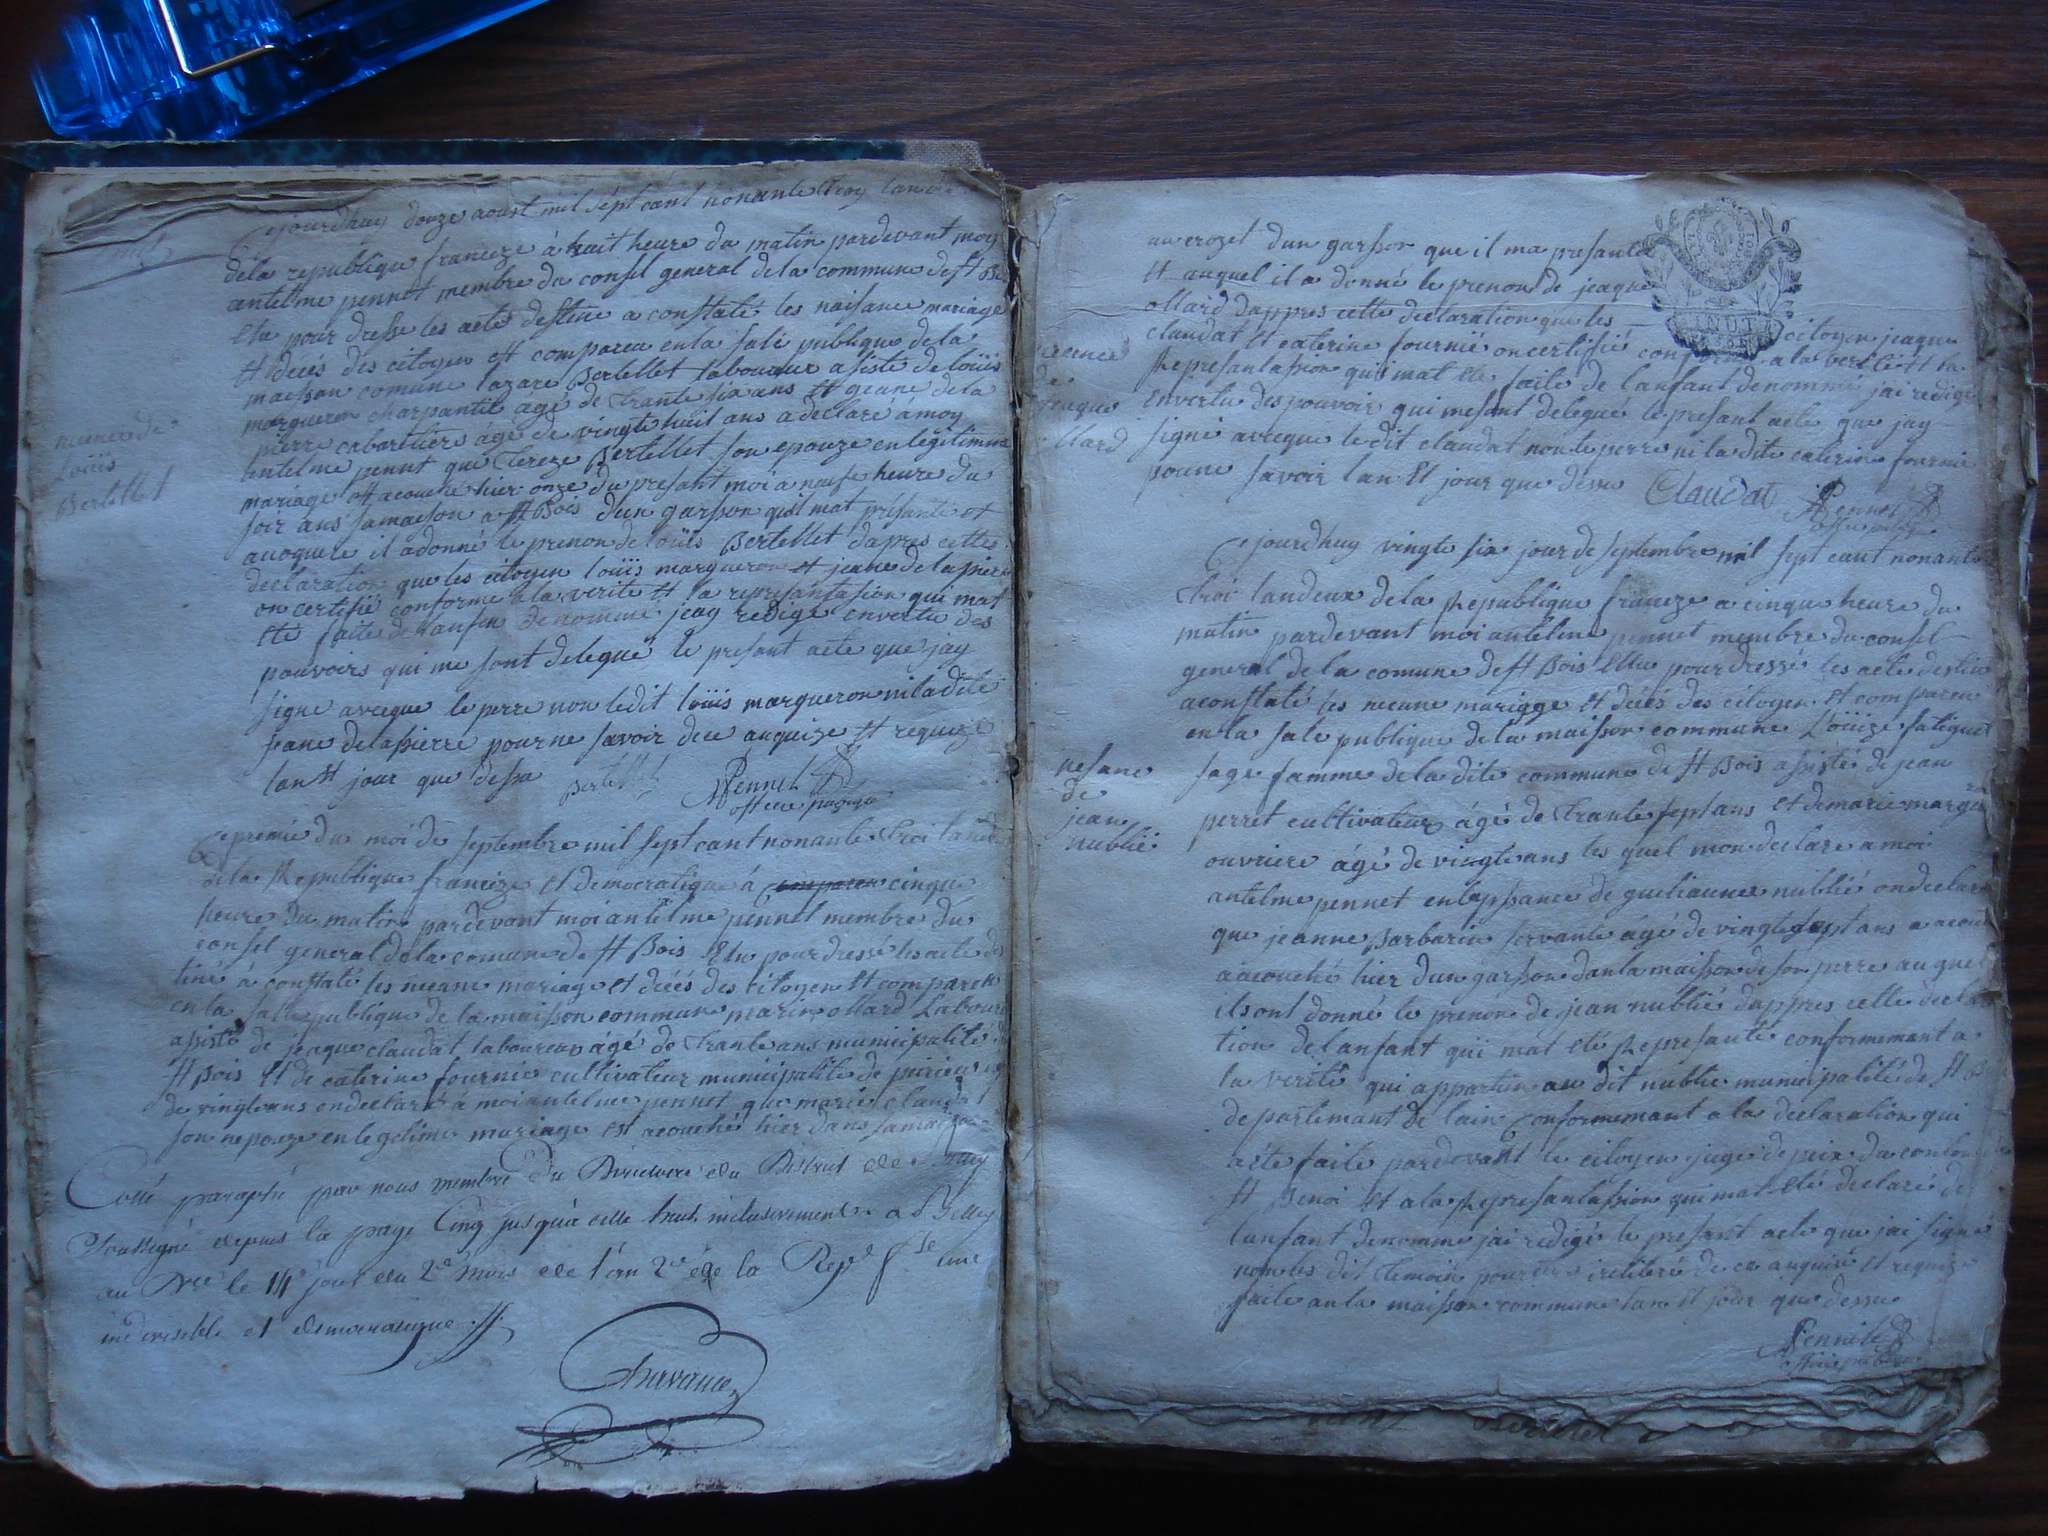 Cejourdhuy douze aoust mil sept cant nonante troy lan
dela republique franceze à huit heure du matin pardevant moy
antelme pennet membre du consel general dela commune de st Bois
Elu pour dresse les acte destine a constate les naisance mariage
Et decés des citoyen est compareu en la sale publique de la
maison comune lazare Bertellet laboureur asiste de loüis
marqueron charpantié âgé de trante six ans et jeane dela
pierre cabaretiere âgé de vingte huit ans a declaré à moy
antelme pennet que tereze Bertellet son epouze en legitimme
mariage est acouché hier onze du presant moi à neufe heure du
soir ans sa maeson a st Bois d'un garsson qu'il m'at présanté et
auoquere il a donné le prenon de loüis Bertellet d'apres cette
declaration que les citoyen loüis marqueron et jeane dela pierre
on certifié conforme a la verité et la represantasion qui mat
eté faite de lanfen denommé jeay redigé en vertu des
pouvoirs qui me sont delegué le presant acte que jay
signe avecque le perre non ledit loüis marqueron ni la dite
jeane delapierre pour ne savoir de ce anquize et requize
lan et jour que dessu Bertellet Pennet
officie publique
neance de
Loüis
Bertellet
Ce premié du moi de septembre mil sept cant nonante troi lan
dela Republique franceze et democratique à compareu cinque
heure du matin pardevant moi antelme pennet membre du
consel general dela comune de st Bois Elu pour dressé les acte des
tiné à constaté les neance mariage et décés des citoyen et compareu
en la salle publique de la maisson commune marin ollard Laboureur
asisté de jeaque claudat laboureur âgé de trante ans municipalité de
st Bois et de caterine fournié cultivateur municipalité de peirieu
de vingte ans on declaré à moi antelme pennet que marie claudat
son nepouze en legetime mariage est acouché hier dans sa maisson
Coté paraphé par nous membre du Directoire du District de Belley
soussigné depuis la page Cinq jusqu'à celle huit inclusivement a Belley
au Dre le 14e jour du 2e mois de l'an 2e de la Repe fse une
indivisible et democratique
Chavance
au crozet d'un garsson que il ma presanté
Et auquel il a donné le prenon de jeaque
ollard d'appres cette declaration que les citoyen jeaque
claudat et caterine fournié on certiffié conforme a la verité et la
Represantassion qui mat ete faite de l'anfant denommé jai redigé
en vertu des pouvoir qui me sont delegué le presant acte que jay
signé avecque le dit claudat non le perre ni la dite caterine fournié
pour ne savoir lan et jour que desu Claudat Pennet
neance
de
jeaque
ollard
Cejourdhuy vingte six jour de septembre mil sept cant nonante
troi lan deux de la Republique franceze a cinque heure du
matin pardevant moi antelme pennet membre du consel
general de la comune de st Bois Ellu pour dressé les acte destiné
a constaté les neance mariage et décés des citoyen et compareu
en la sale publique de la maisson commune Loüize fatiguet
sage famme de la dite commune de st Bois asisté de jean
perret cultivateur âgé de trante sept ans et de marie marque
ouvriere âgé de vingte ans les quel mon declare a moi
antelme pennet en lapssance de gueliaume nublié on declaré
que jeanne Barbarin servante âgé de vingte sept ans
acouché hier d'un garsson dan la maisson de son perre au quel
il sont donné le prenon de jean nublié d'appres cette declara
tion de l'anfant qui mat eté Represanté conformemant a
la verité qui appartin au dit nublié municipalité de st Bois
departemant de l'ain conformemant a la declaration qui
a eté faite pardevant le citoyen juge de peix du canton de
st Benoi et a la Represantassion qui mat eté declaré de
lanfant denomme jai redigé le presant acte que jai signé
non les dit temoin pour etre ireliteré de ce anquise et requize
faite an la maisson commune lan et jour que dessu
Pennet
officie publique
nesance
de
jean
nublié